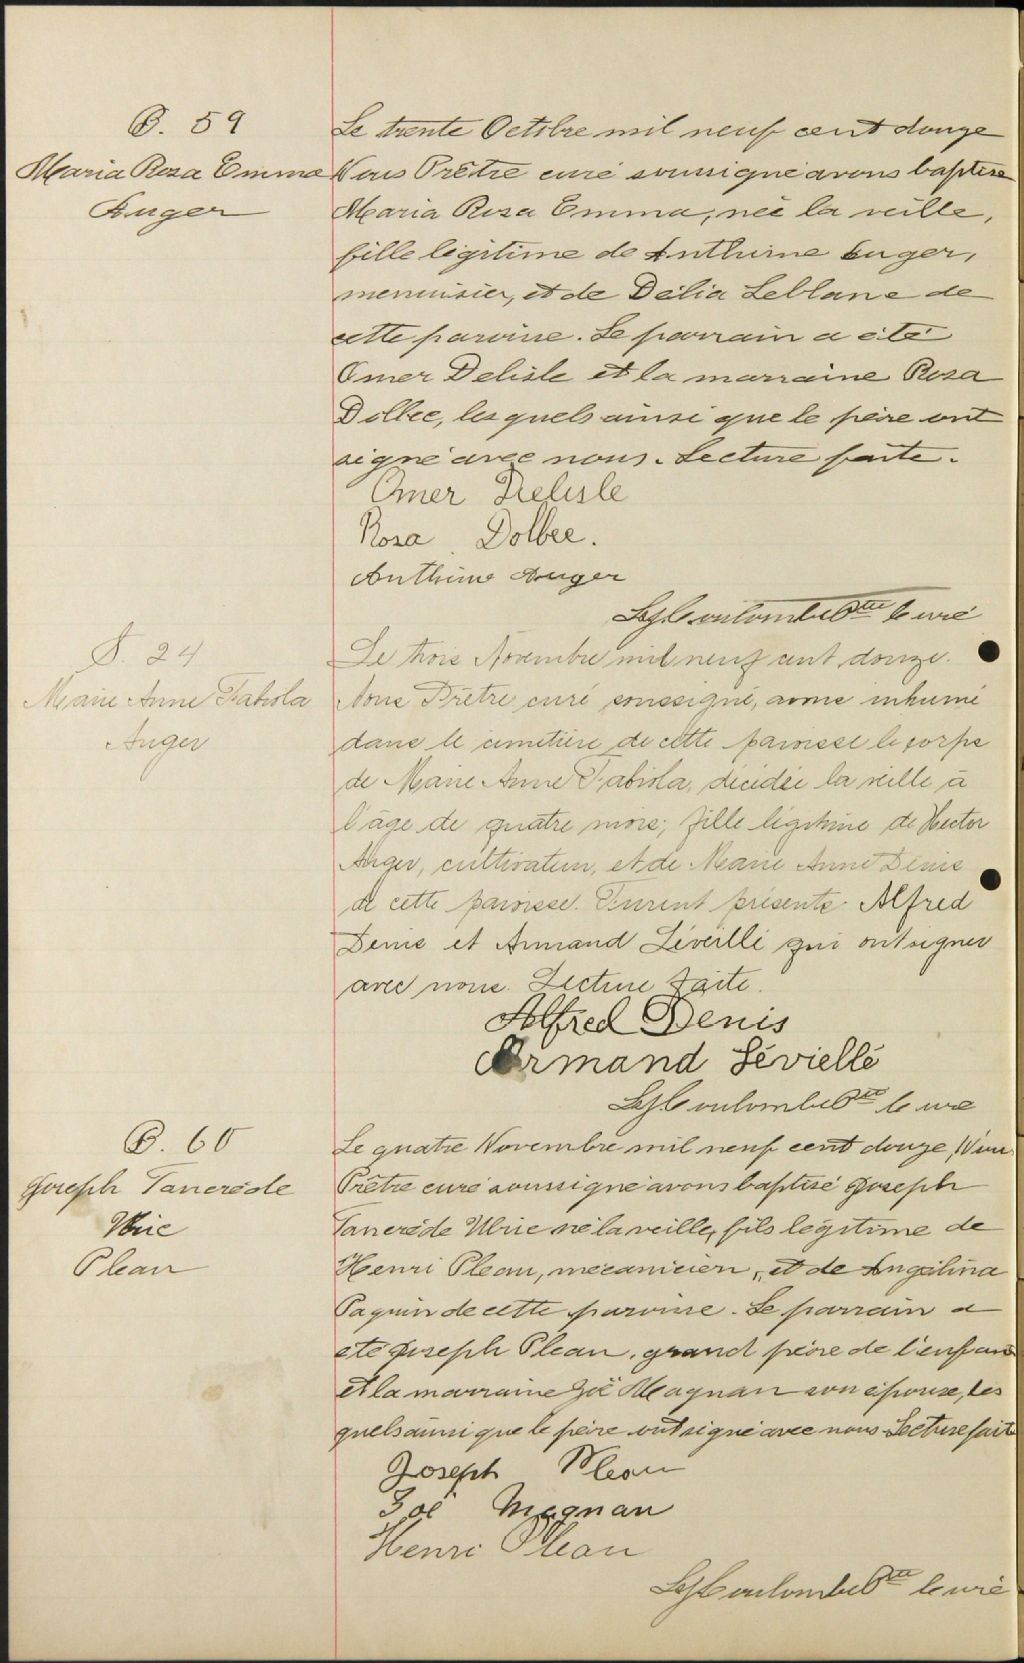 B. 59
Maria Rosa Emma
Auger
Le trente Octobre mil neuf cent douze
Nous Prêtre curé soussigné avons baptisé
Maria Rosa Emma, née la veille,
fille légitime de Anthime Auger,
menuisier, et de Délia Leblanc de
cette paroisse. Le parrain a été
Omer Delisle et la marraine Rosa
Dolbec, lesquels ainsi que le père ont
signé avec nous. Lecture faite.
Omer Delisle
Rosa Dolbec.
Anthime Auger
Coulombe Ptre curé
S. 24
Marie Anne Fabiola
Auger
Le trois Novembre mil neuf cent douze.
Nous Prêtre curé soussigné, avons inhumé
dans le cimetière de cette paroisse le corps
de Marie Anne Fabiola, décédée la veille à
l'âge de quatre mois; fille légitime de Hector
Auger, cultivateur, et de Marie Anne Denis
de cette paroisse. Furent présents Alfred
Denis et Armand Léveillé qui ont signer
avec nous. Lecture faite.
Alfred Denis
Armand Léviellé
Coulombe Ptre curé
B. 60
Joseph Tancrède
Ulric
Pleau
Le quatre Novembre mil neuf cent douze, Nous
Prêtre curé soussigné avons baptisé Joseph
Tancrède Ulric né la veille, fils légitime de
Henri Pleau, mécanicien, et de Angélina
Paquin de cette paroisse. Le parrain a
été Joseph Pleau, grand père de l'enfant
et la marraine Zoé Magnan son épouse, les
quels ainsi que le père ont signé avec nous. Lecture faite
Joseph Pleau
Zoé Magnan
Henri Pleau
Coulombe Ptre curé